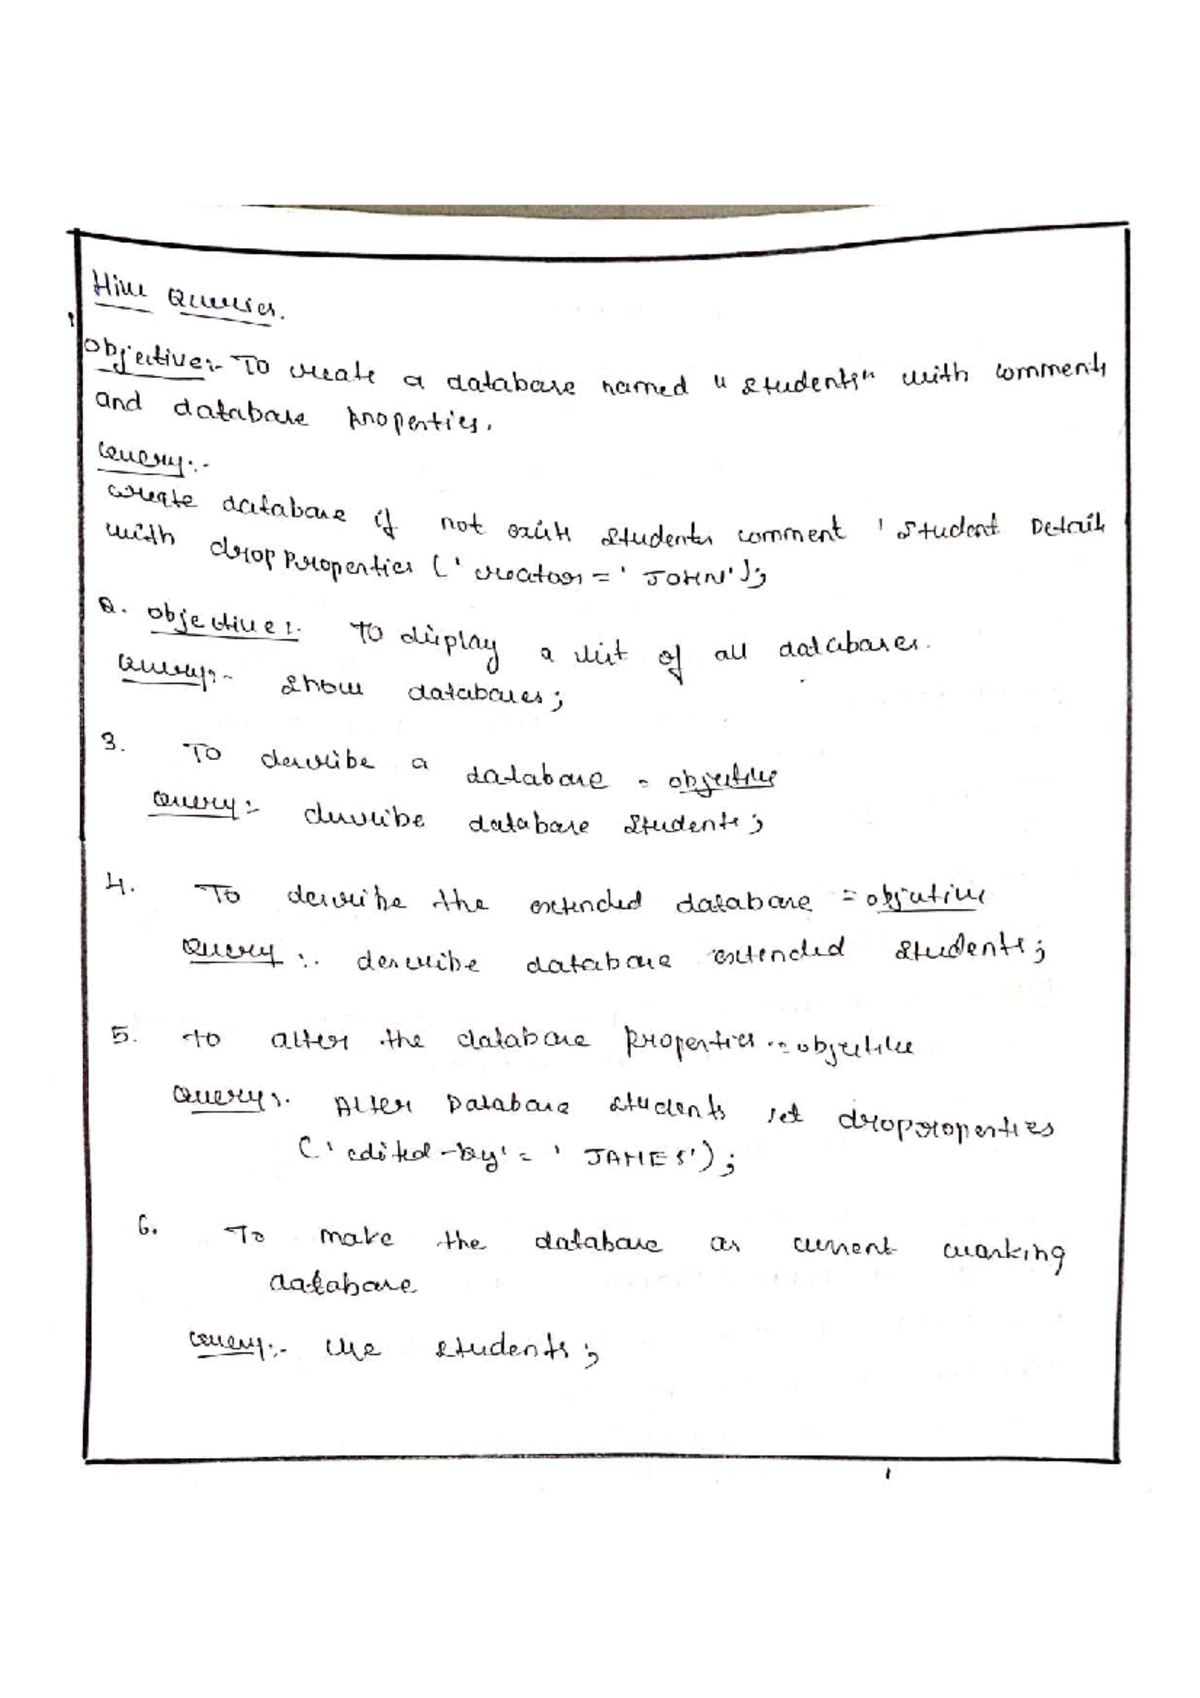 Hive Queries.
1
Objective:- To create a database named "Students" with comments
and database properties.
Query:-
create database if not exists students comment 'Student Details
with dropproperties ('creator = 'JOHN');
2. Objective:- To display a list of all databases.
Query:- show databases;
3. To describe a database = objective
Query:- describe database students;
4. To describe the extended database = objective
Query:- describe database extended students;
5. to alter the database properties = objective
Query:- Alter Database students set dropproperties
('edited-by' = 'JAMES');
6. To make the database as current working
database
Query:- use students;